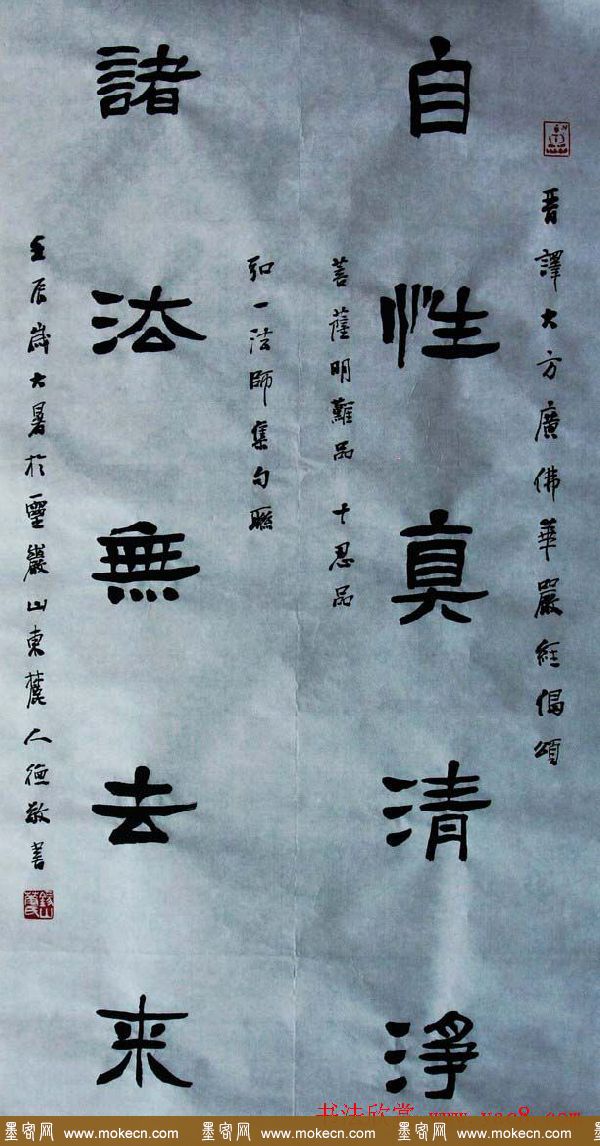 晉譯大方廣佛華嚴經偈頌
自性真清淨
菩薩明難品 十忍品
弘一法師集句聯
諸法無去来
壬辰歲大暑於靈巖山東麓人德敬書
书法欣赏 www.yac8.com
墨客网 www.mokecn.com 墨客网 www.mokecn.com 墨客网 www.mokecn.com